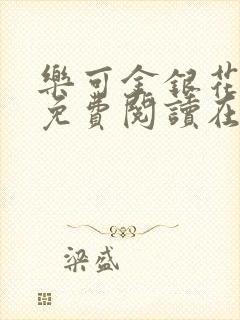 樂可金銀花
免費閱讀在
梁盛